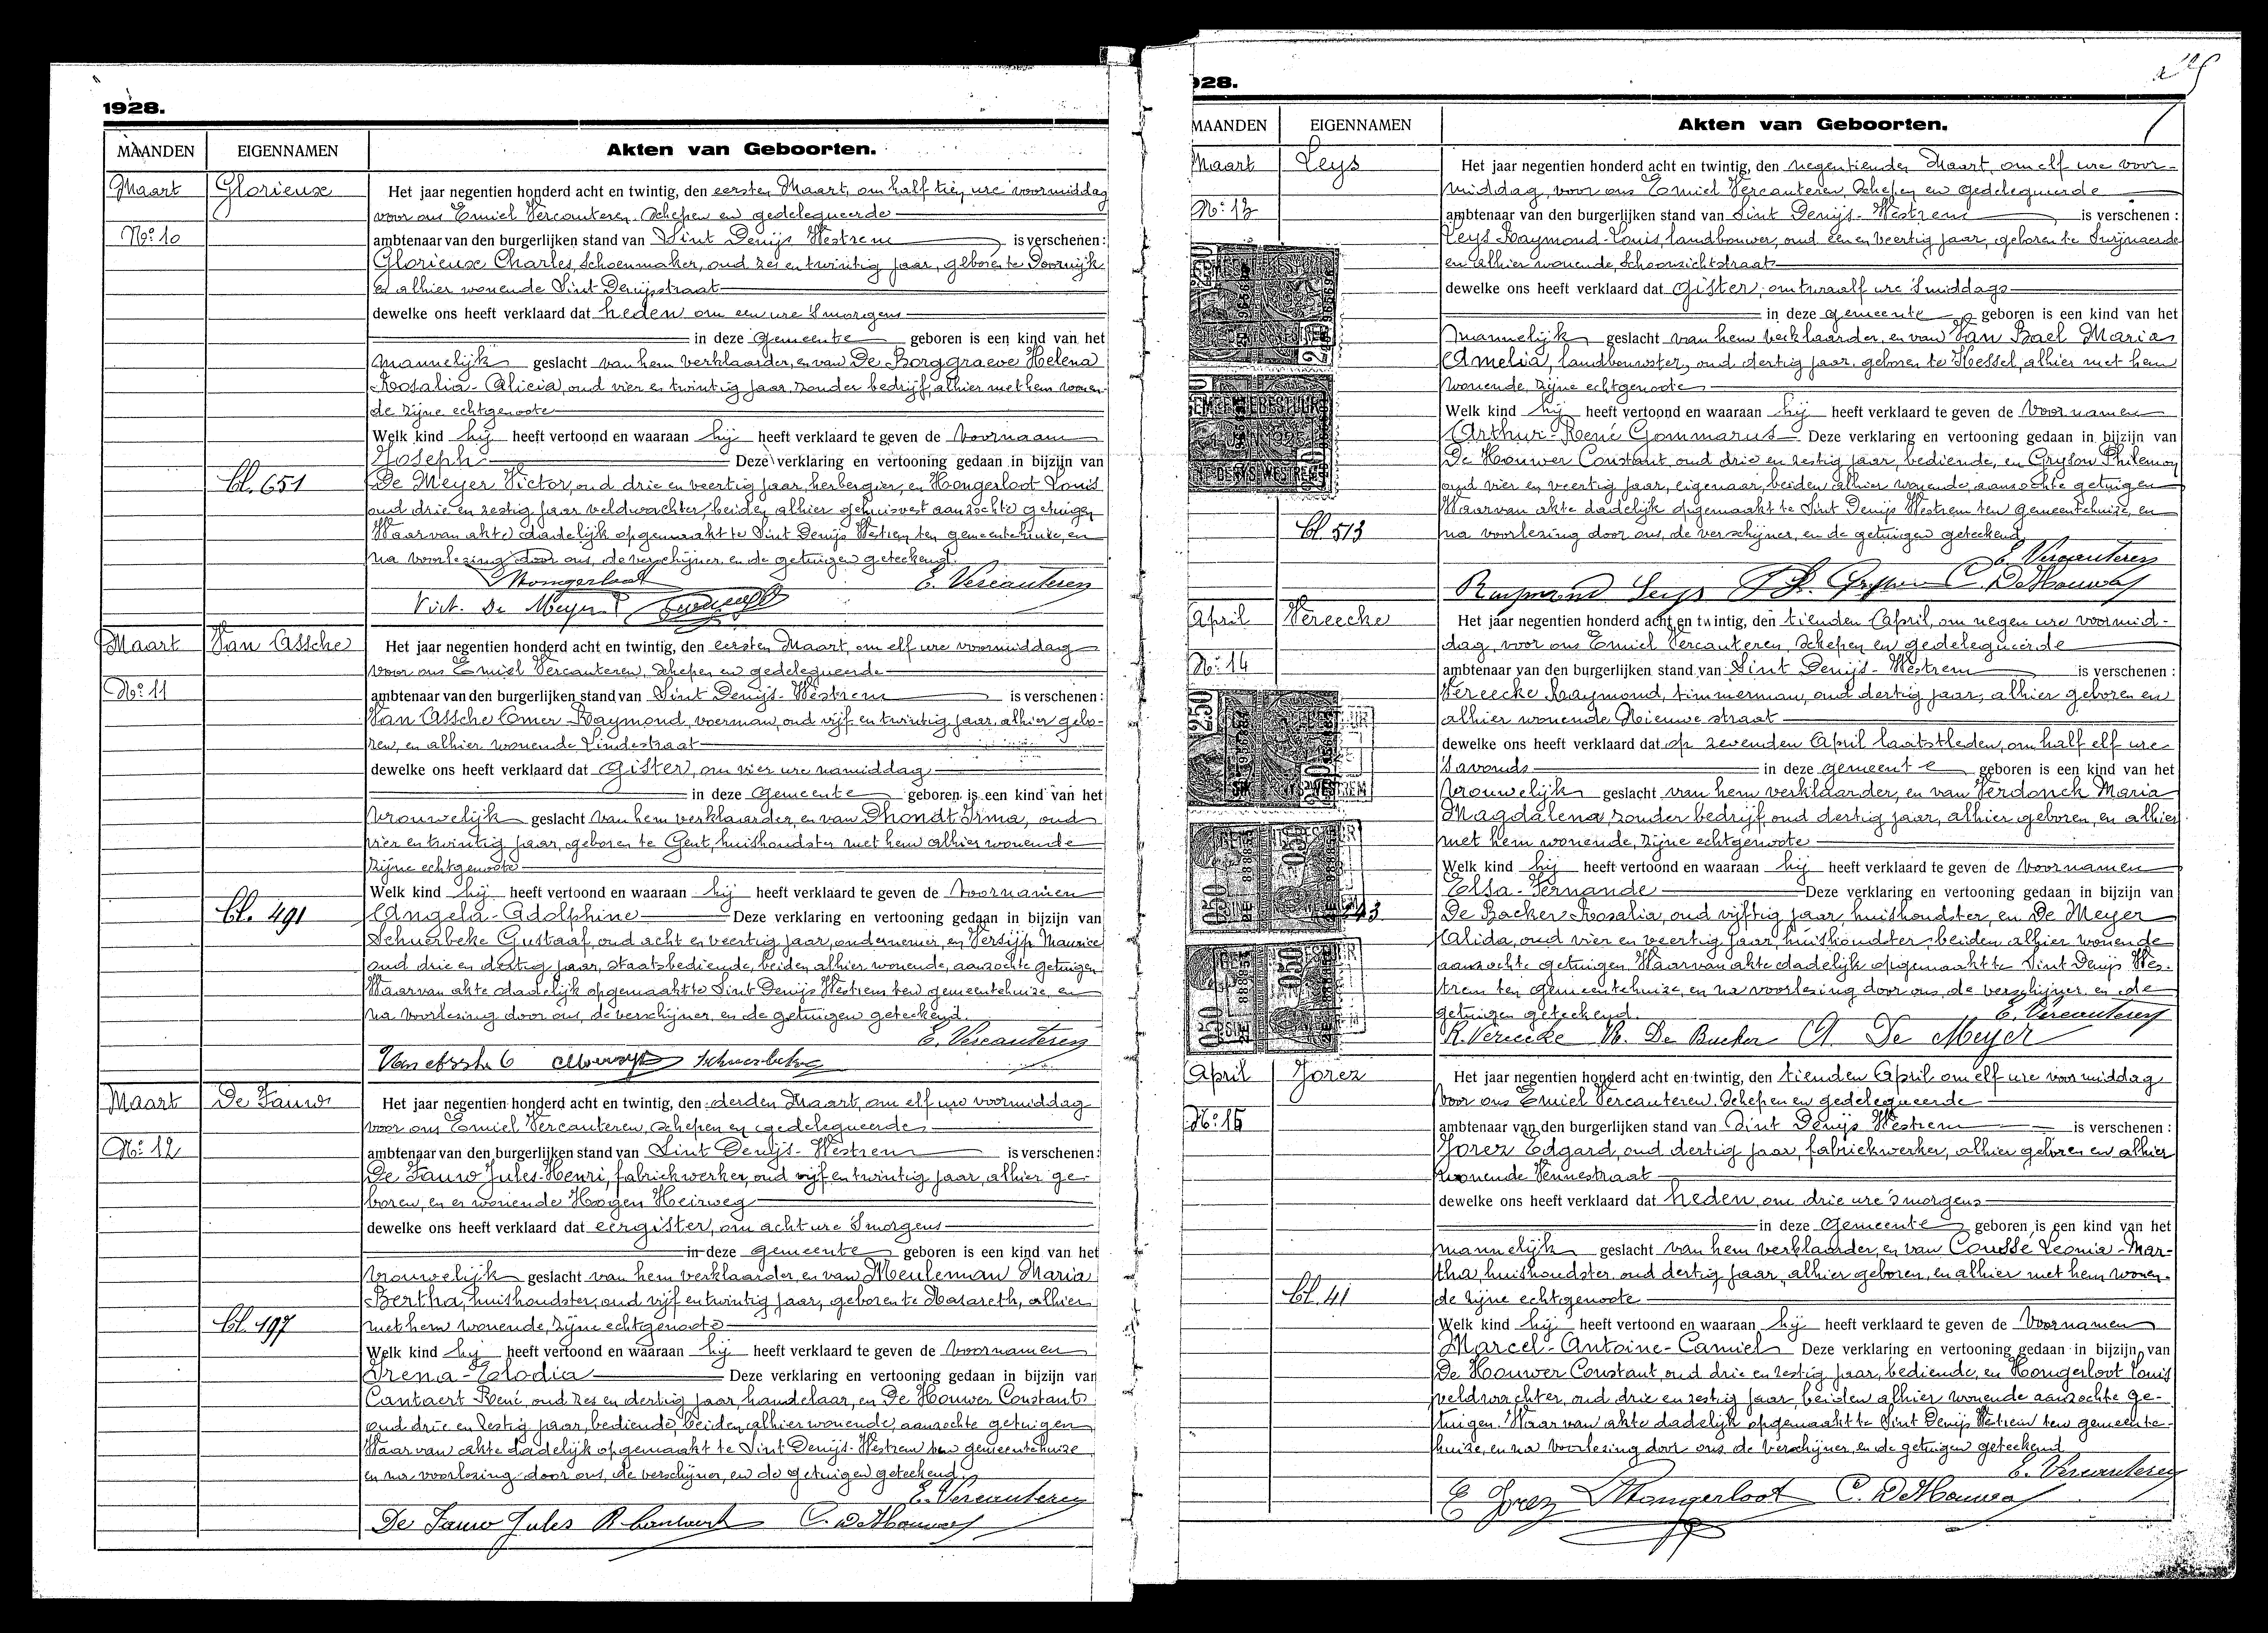 1928.
MAANDEN EIGENNAMEN Akten van Geboorten.
Maart Glorieux Het jaar negentien honderd acht en twintig, den eersten Maart, om half tien ure voormiddag
voor ons Emiel Vercauteren, Schepen en gedelegueerde
No: 10 ambtenaar van den burgerlijken stand van Sint Denijs Westrem is verschenen:
Glorieux Charles, Schoenmaker, oud zes en twintig jaar, geboren te Doornijk
en alhier wonende Sint Denijsstraat
dewelke ons heeft verklaard dat heden om een ure 's morgens
in deze Gemeente geboren is een kind van het
mannelijk geslacht van hem verklaarder, en van De Borggraeve Helena
Rosalia-Alicia, oud vier en twintig jaar, zonder bedrijf, alhier met hem wonen-
de zijne echtgenoote
Welk kind hij heeft vertoond en waaraan hij heeft verklaard te geven de Voornaam
Joseph Deze verklaring en vertooning gedaan in bijzijn van
bl. 651 De Meyer Victor, oud drie en veertig jaar, herbergier, en Hongerloot Louis
oud drie en zestig jaar veldwachter, beiden alhier gehuisvest aanzochte getuigen
Waarvan akte dadelijk opgemaakt te Sint Denijs Westrem ten gemeentehuize, en
na voorlezing door ons, de verschijner en de getuigen geteekend.
Hongerloot E. Vercauteren
Vict. De Meyer
Maart Van Assche Het jaar negentien honderd acht en twintig, den eersten Maart, om elf ure voormiddag
voor ons Emiel Vercauteren, Schepen en gedelegueerde
No: 11 ambtenaar van den burgerlijken stand van Sint Denijs-Westrem is verschenen:
Van Assche Omer-Raymond, voerman, oud vijf en twintig jaar, alhier gebo-
ren, en alhier wonende Lindestraat
dewelke ons heeft verklaard dat Gister, om vier ure namiddag
in deze Gemeente geboren is een kind van het
vrouwelijk geslacht van hem verklaarder, en van Dhondt Irma, oud
vier en twintig jaar, geboren te Gent, huishoudster met hem alhier wonende
zijne echtgenoote
Welk kind hij heeft vertoond en waaraan hij heeft verklaard te geven de Voornamen
bl. 491 Angela-Adolphine Deze verklaring en vertooning gedaan in bijzijn van
Schuerbeke Gustaaf, oud acht en veertig jaar, ondernemer, en Versijp Maurice
oud drie en dertig jaar, staatsbediende, beiden alhier wonende, aanzochte getuigen
Waarvan akte dadelijk opgemaakt te Sint Denijs Westrem ten gemeentehuize, en
na voorlezing door ons, de verschijner, en de getuigen geteekend.
E. Vercauteren
Van Assche O Schuerbeke
Maart De Fauw Het jaar negentien honderd acht en twintig, den derden Maart, om elf ure voormiddag
voor ons Emiel Vercauteren, Schepen en gedelegueerde
No: 12 ambtenaar van den burgerlijken stand van Sint Denijs-Westrem is verschenen:
De Fauw Jules-Henri, fabriekwerker, oud vijf en twintig jaar, alhier ge-
boren, en er wonende Hoogen Heirweg
dewelke ons heeft verklaard dat eergister, om acht ure 's morgens
in deze gemeente geboren is een kind van het
vrouwelijk geslacht van hem verklaarder, en van Meuleman Maria
Bertha, huishoudster, oud vijf en twintig jaar, geboren te Nazareth, alhier
bl. 197 met hem wonende, zijne echtgenoote
Welk kind hij heeft vertoond en waaraan hij heeft verklaard te geven de Voornamen
Irena-Elodia Deze verklaring en vertooning gedaan in bijzijn van
Cantaert René, oud zes en dertig jaar, handelaar, en De Houwer Constant
oud drie en zestig jaar, bediende, beiden alhier wonende, aanzochte getuigen
Waarvan akte dadelijk opgemaakt te Sint Denijs-Westrem ten gemeentehuize
en na voorlezing door ons, de verschijner, en de getuigen geteekend.
E. Vercauteren
De Fauw Jules R. Cantaert C. De Houwer
928.
MAANDEN EIGENNAMEN Akten van Geboorten.
Maart Leys Het jaar negentien honderd acht en twintig, den negentienden Maart, om elf ure voor-
middag, voor ons Emiel Vercauteren, Schepen en gedelegueerde
No: 13 ambtenaar van den burgerlijken stand van Sint Denijs-Westrem is verschenen:
Leys Raymond-Louis, landbouwer, oud een en veertig jaar, geboren te Swijnaerde
en alhier wonende, Schoonzichtstraat
dewelke ons heeft verklaard dat Gister, om twaalf ure 's middags
in deze gemeente geboren is een kind van het
Mannelijk geslacht van hem verklaarder, en van Van Bael Maria
Amelia, landbouwster, oud dertig jaar, geboren te Hessel, alhier met hem
wonende, zijne echtgenoote
Welk kind hij heeft vertoond en waaraan hij heeft verklaard te geven de Voornamen
Arthur-René Gommarus Deze verklaring en vertooning gedaan in bijzijn van
De Houwer Constant, oud drie en zestig jaar, bediende, en Gryson Philemon
oud vier en veertig jaar, eigenaar, beiden alhier wonende, aanzochte getuigen
Waarvan akte dadelijk opgemaakt te Sint Denijs Westrem ten gemeentehuize, en
bl. 513 na voorlezing door ons, de verschijner, en de getuigen geteekend
E. Vercauteren
Raymond Leys Ph. Gryson C. De Houwer
April Vereecke Het jaar negentien honderd acht en twintig, den tienden April, om negen ure voormid-
dag, voor ons Emiel Vercauteren, Schepen en gedelegueerde
No: 14 ambtenaar van den burgerlijken stand van Sint Denijs-Westrem is verschenen:
Vereecke Raymond, timmerman, oud dertig jaar, alhier geboren en
alhier wonende Nieuwe straat
dewelke ons heeft verklaard dat op zevenden April laatstleden, om half elf ure
's avonds in deze gemeente geboren is een kind van het
Vrouwelijk geslacht van hem verklaarder, en van Verdonck Maria
Magdalena, zonder bedrijf, oud dertig jaar, alhier geboren, en alhier
met hem wonende, zijne echtgenoote
Welk kind hij heeft vertoond en waaraan hij heeft verklaard te geven de Voornamen
Elsa-Fernande Deze verklaring en vertooning gedaan in bijzijn van
De Backer Rosalia, oud vijftig jaar, huishoudster, en De Meyer
Alida, oud vier en veertig jaar, huishoudster, beiden alhier wonende
aanzochte getuigen. Waarvan akte dadelijk opgemaakt te Sint Denijs Wes-
trem ten gemeentehuize, en na voorlezing door ons, de verschijner, en de
getuigen geteekend. E. Vercauteren
R. Vereecke R. De Backer A De Meyer
April Jorez Het jaar negentien honderd acht en twintig, den tienden April om elf ure voormiddag
voor ons Emiel Vercauteren, Schepen en gedelegueerde
No: 15 ambtenaar van den burgerlijken stand van Sint Denijs Westrem is verschenen:
Jorez Edgard, oud dertig jaar, fabriekwerker, alhier geboren en alhier
wonende Vennestraat
dewelke ons heeft verklaard dat heden, om drie ure 's morgens
in deze Gemeente geboren is een kind van het
mannelijk geslacht van hem verklaarder, en van Coussé Leonia-Mar-
tha, huishoudster, oud dertig jaar, alhier geboren, en alhier met hem wonen-
bl. 41 de zijne echtgenoote
Welk kind hij heeft vertoond en waaraan hij heeft verklaard te geven de Voornamen
Marcel-Antoine-Camiel Deze verklaring en vertooning gedaan in bijzijn van
De Houwer Constant, oud drie en zestig jaar, bediende, en Hongerloot Louis
veldwachter, oud drie en zestig jaar, beiden alhier wonende aanzochte ge-
tuigen. Waarvan akte dadelijk opgemaakt te Sint Denijs Westrem ten gemeente-
huize, en na voorlezing door ons, de verschijner, en de getuigen geteekend
E. Vercauteren
E Jorez Hongerloot C. De Houwer